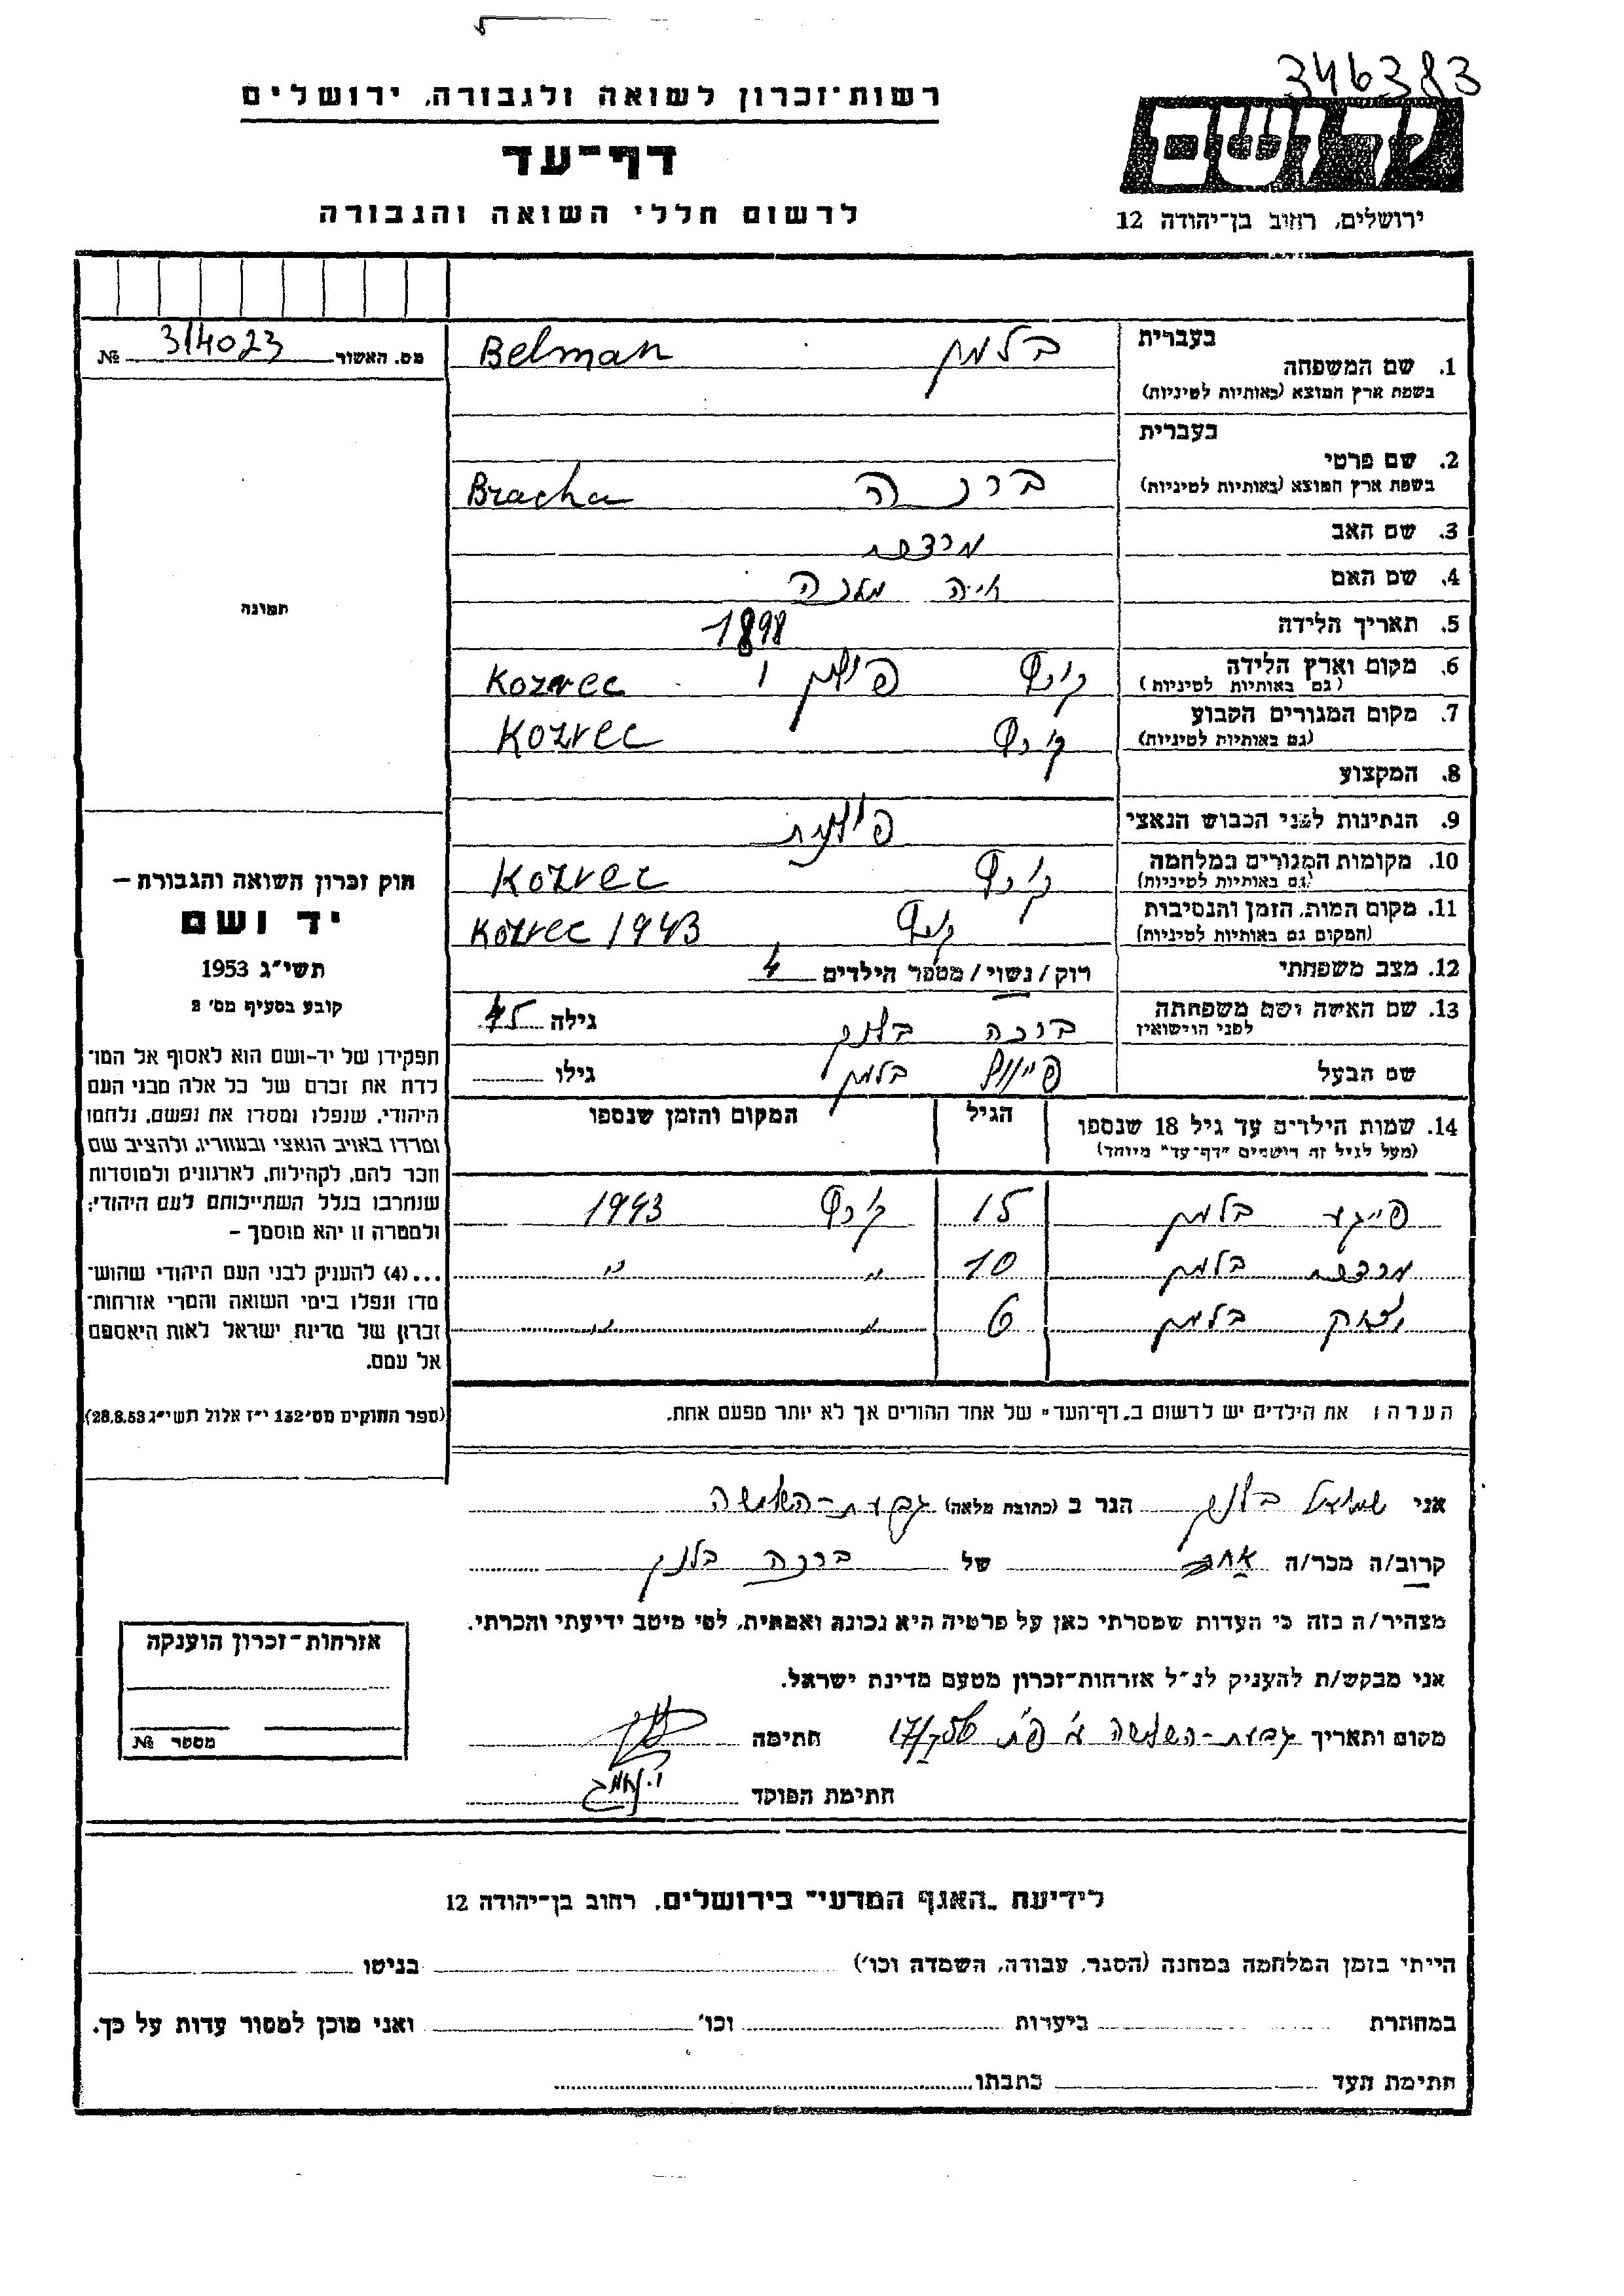 346383
רשות־זכרון לשואה ולגבורה, ירושלים
דף־עד
לרשום חללי השואה והגבורה
ידושם
ירושלים, רחוב בן־יהודה 12
מס. האשור 314023 №
בעברית
1. שם המשפחה
בשפת ארץ המוצא (באותיות לטיניות)
בלמן Belman
בעברית
2. שם פרטי
בשפת ארץ המוצא (באותיות לטיניות)
ברכה Bracha
3. שם האב
מרדכי
4. שם האם
חיה מלכה
5. תאריך הלידה 1898
6. מקום וארץ הלידה
(גם באותיות לטיניות)
פולין Kozrec
7. מקום המגורים הקבוע
(גם באותיות לטיניות)
Kozrec
8. המקצוע
9. הנתינות לפני הכבוש הנאצי
פולנית
10. מקומות המגורים במלחמה
(גם באותיות לטיניות)
Kozrec
11. מקום המות, הזמן והנסיבות
(המקום גם באותיות לטיניות)
Kozrec 1943
12. מצב משפחתי רוק/נשוי/מספר הילדים 4
13. שם האשה ושם משפחתה
לפני הנישואין
ברכה גילה 45
שם הבעל בלמן גילו
14. שמות הילדים עד גיל 18 שנספו
(מעל לגיל זה רושמים "דף־עד" מיוחד)
הגיל
המקום והזמן שנספו
פייגע בלמן 15 1943
מרדכי בלמן 10 " "
יצחק בלמן 6 " "
תמונה
חוק זכרון השואה והגבורה –
יד ושם
תשי״ג 1953
קובע בסעיף מס׳ 2
תפקידו של יד־ושם הוא לאסוף אל המו־
לדת את זכרם של כל אלה מבני העם
היהודי, שנפלו ומסרו את נפשם, נלחמו
ומרדו באויב הנאצי ובעוזריו, ולהציב שם
וזכר להם, לקהילות, לארגונים ולמוסדות
שנחרבו בגלל השתייכותם לעם היהודי;
ולמטרה זו יהא מוסמך –
...(4) להעניק לבני העם היהודי שהוש־
מדו ונפלו בימי השואה והמרי אזרחות־
זכרון של מדינת ישראל לאות היאספם
אל עמם.
(ספר החוקים מס׳ 132 י״ז אלול תשי״ג 28.8.53)
הערה: את הילדים יש לרשום ב„דף־העד" של אחד ההורים אך לא יותר מפעם אחת.
אני שמואל הגר ב (כתובת מלאה) גבעת-השלושה
קרוב/ה מכר/ה של ברכה
מצהיר/ה בזה כי העדות שמסרתי כאן על פרטיה היא נכונה ואמתית, לפי מיטב ידיעתי והכרתי.
אני מבקש/ת להעניק לנ״ל אזרחות־זכרון מטעם מדינת ישראל.
מקום ותאריך גבעת-השלושה חתימה
חתימת הפוקד
אזרחות־זכרון הוענקה
מספר №
לידיעת „האגף המדעי" בירושלים, רחוב בן־יהודה 12
הייתי בזמן המלחמה במחנה (הסגר, עבודה, השמדה וכו׳) בגיטו
במחתרת ביערות וכו׳ ואני מוכן למסור עדות על כך.
חתימת העד כתבתו